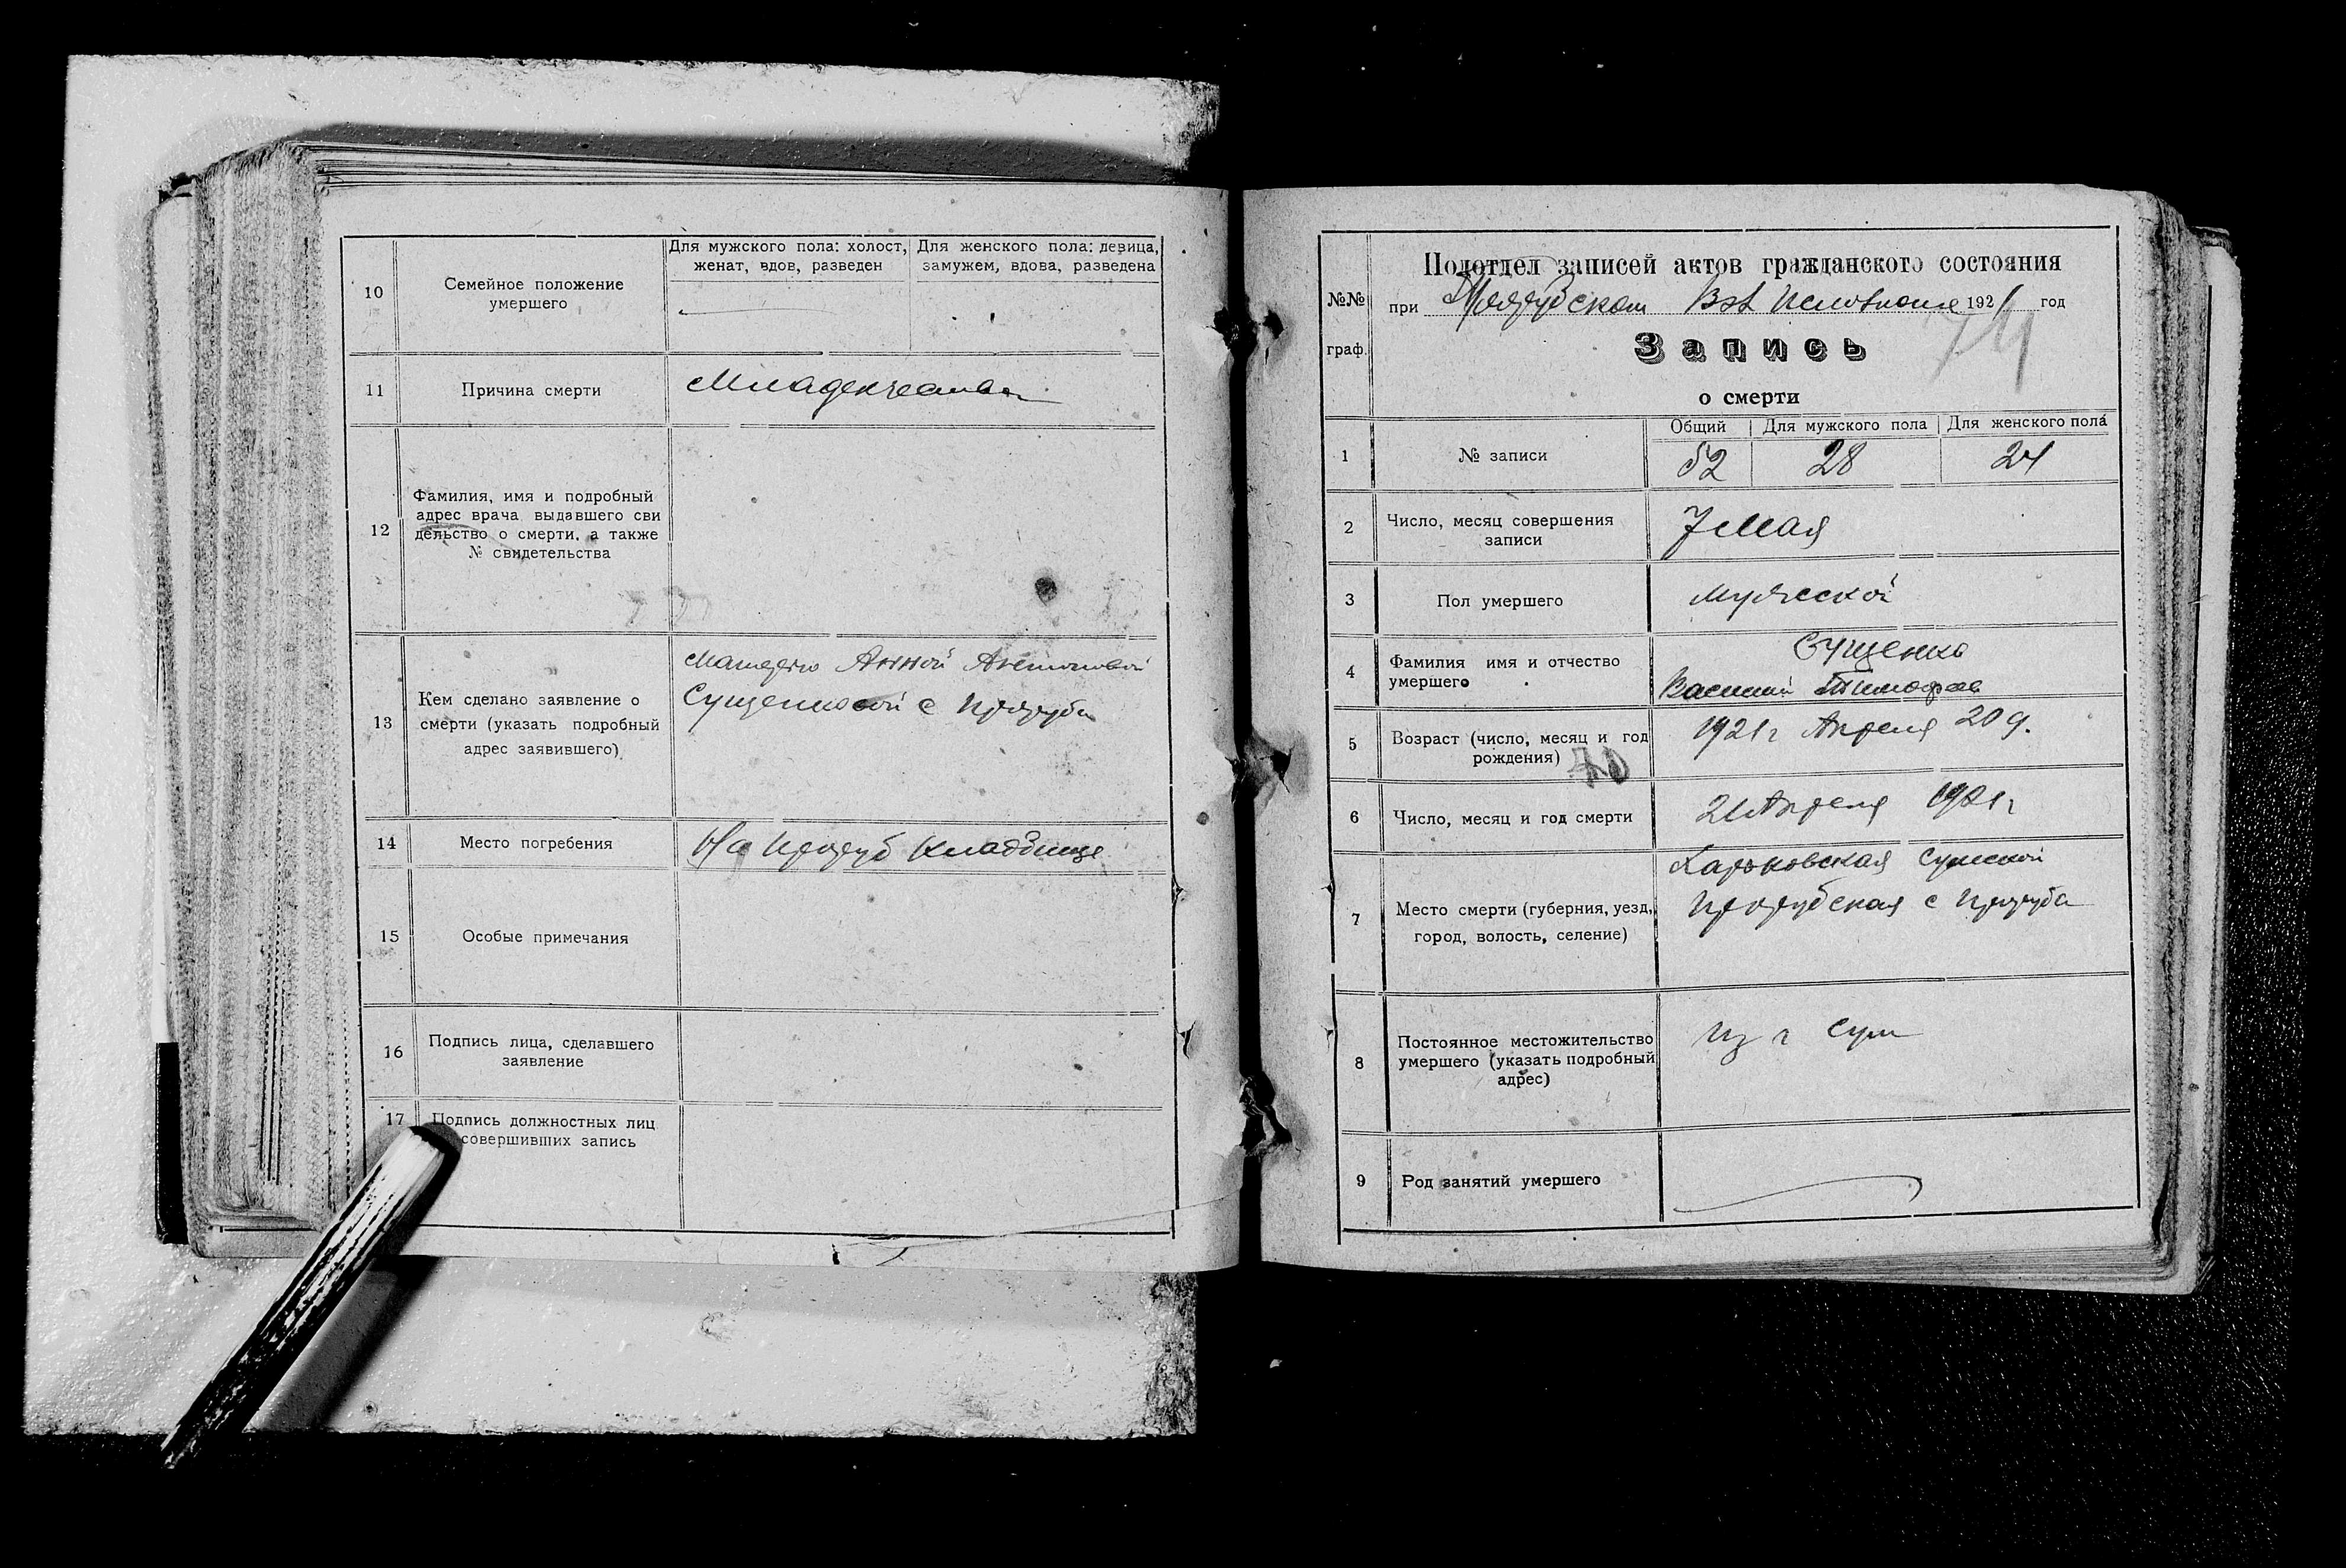 10
Семейное положение
умершего
Для мужского пола: холост,
женат, вдов, разведен
Для женского пола: девица,
замужем, вдова, разведена
11
Причина смерти
Младенчества
12
Фамилия, имя и подробный
адрес врача выдавшего сви
дельство о смерти, а также
№ свидетельства
13
Кем сделано заявление о
смерти (указать подробный
адрес заявившего)
Матерью Анной Антоновой
Сущенковой с Прорубы
14
Место погребения
На Проруб Кладбище
15
Особые примечания
16
Подпись лица, сделавшего
заявление
17
Подпись должностных лиц
совершивших запись
№№
граф.
Подотдел записей актов гражданского состояния
при Прорубском Вол 1921 год
74
Запись
о смерти
1
№ записи
Общий
Для мужского пола
Для женского пола
52
28
24
2
Число, месяц совершения
записи
7 Мая
3
Пол умершего
Мужской
4
Фамилия имя и отчество
умершего
Сущенко
Василий Тимофеев
5
Возраст (число, месяц и год
рождения)
70
1921 г Апреля 20 д.
6
Число, месяц и год смерти
21 Апреля 1921 г
7
Место смерти (губерния, уезд,
город, волость, селение)
Харьковская Сумской
Прорубская с Проруба
8
Постоянное местожительство
умершего (указать подробный
адрес)
из г Сум
9
Род занятий умершего